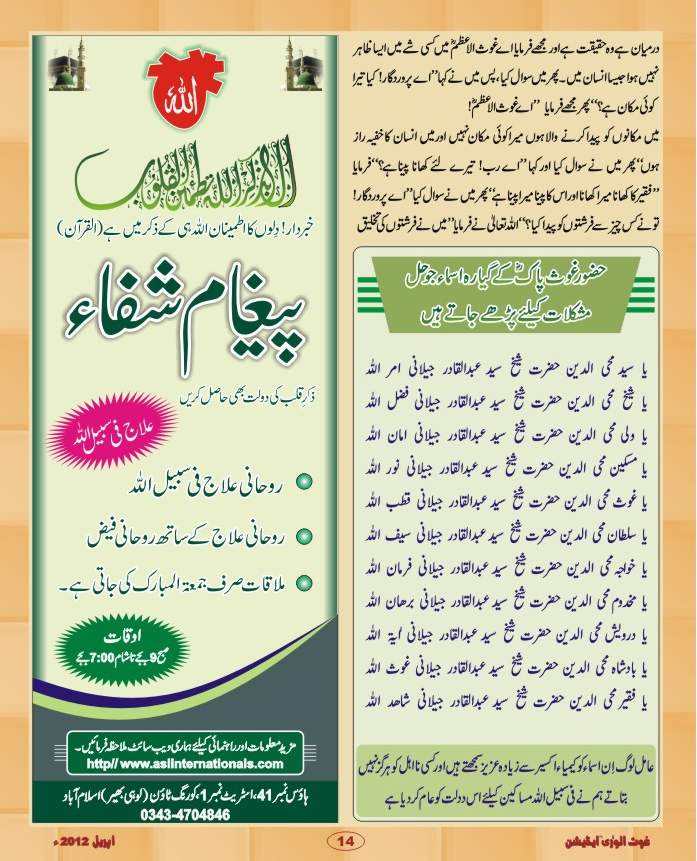 درمیان ہے وہ حقیقت ہے اور مجھے فرمایا اے غوث الاعظمؓ میں کسی شے میں ایسا ظاہر
نہیں ہوا جیسا انسان میں۔ پھر میں سوال کیا، پس میں نے کہا ''اے پروردگار! کیا تیرا
کوئی مکان ہے؟'' پھر مجھے فرمایا ''اے غوث الاعظمؓ!
میں مکانوں کو پیدا کرنے والا ہوں میرا کوئی مکان نہیں اور میں انسان کا خفیہ راز
ہوں'' پھر میں نے سوال کیا اور کہا ''اے رب! تیرے لئے کھانا پینا ہے؟'' فرمایا
''فقیر کا کھانا میرا کھانا اور اس کا پینا میرا پینا ہے'' پھر میں نے سوال کیا ''اے پروردگار!
تو نے کس چیز سے فرشتوں کو پیدا کیا؟'' اللہ تعالیٰ نے فرمایا ''میں نے فرشتوں کی تخلیق
حضور غوث پاکؓ کے گیارہ اسماء جو حل
مشکلات کیلئے پڑھے جاتے ہیں
یا سید محی الدین حضرت شیخ سید عبدالقادر جیلانی امر اللہ
یا شیخ محی الدین حضرت شیخ سید عبدالقادر جیلانی فضل اللہ
یا ولی محی الدین حضرت شیخ سید عبدالقادر جیلانی امان اللہ
یا مسکین محی الدین حضرت شیخ سید عبدالقادر جیلانی نور اللہ
یا غوث محی الدین حضرت شیخ سید عبدالقادر جیلانی قطب اللہ
یا سلطان محی الدین حضرت شیخ سید عبدالقادر جیلانی سیف اللہ
یا خواجہ محی الدین حضرت شیخ سید عبدالقادر جیلانی فرمان اللہ
یا مخدوم محی الدین حضرت شیخ سید عبدالقادر جیلانی برھان اللہ
یا درویش محی الدین حضرت شیخ سید عبدالقادر جیلانی آیة اللہ
یا بادشاہ محی الدین حضرت شیخ سید عبدالقادر جیلانی غوث اللہ
یا فقیر محی الدین حضرت شیخ سید عبدالقادر جیلانی شاھد اللہ
عامل لوگ اِن اسماء کو کیمیاء اکسیر سے زیادہ عزیز سمجھتے ہیں اور کسی نا اہل کو ہرگز نہیں
بتاتے ہم نے فی سبیل اللہ مساکین کیلئے اس دولت کو عام کر دیا ہے
اللہ
الا بذکر اللہ تطمئن القلوب
خبردار! دِلوں کا اطمینان اللہ ہی کے ذکر میں ہے (القرآن)
پیغام شفاء
ذکرِ قلب کی دولت بھی حاصل کریں
علاج فی سبیل اللہ
روحانی علاج فی سبیل اللہ
روحانی علاج کے ساتھ روحانی فیض
ملاقات صرف جمعۃ المبارک کی جاتی ہے۔
اوقات
صبح 9 بجے تا شام 7:00 بجے
مزید معلومات اور راہنمائی کیلئے ہماری ویب سائٹ ملاحظہ فرمائیں۔
http// www.aslinternationals.com
ہاؤس نمبر 41، اسٹریٹ نمبر 1، کورنگ ٹاؤن (لوہی بھیر) اسلام آباد
0343-4704846
غوث الوریٰ ایڈیشن
14
اپریل 2012ء